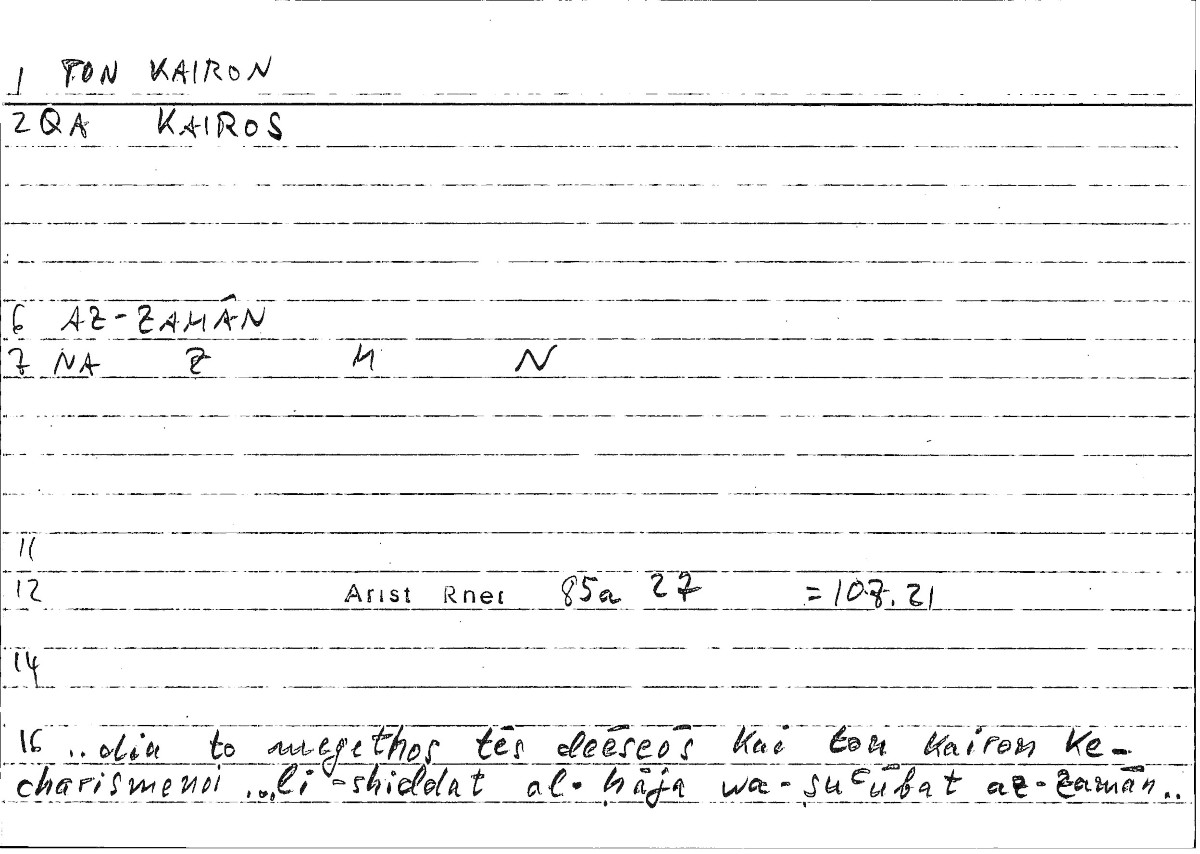 1 TON KAIRON
2 QA KAIROS
6 AZ-ZAMÂN
7 NA Z M N
11
12 Arist Rhet 85a 27 =107.21
14
16 ..dia to megethos tēs deēseōs kai ton kairon ke-
charismenoi ...li-shiddat al-ḥāja wa-ṣuʿūbat az-zamān..